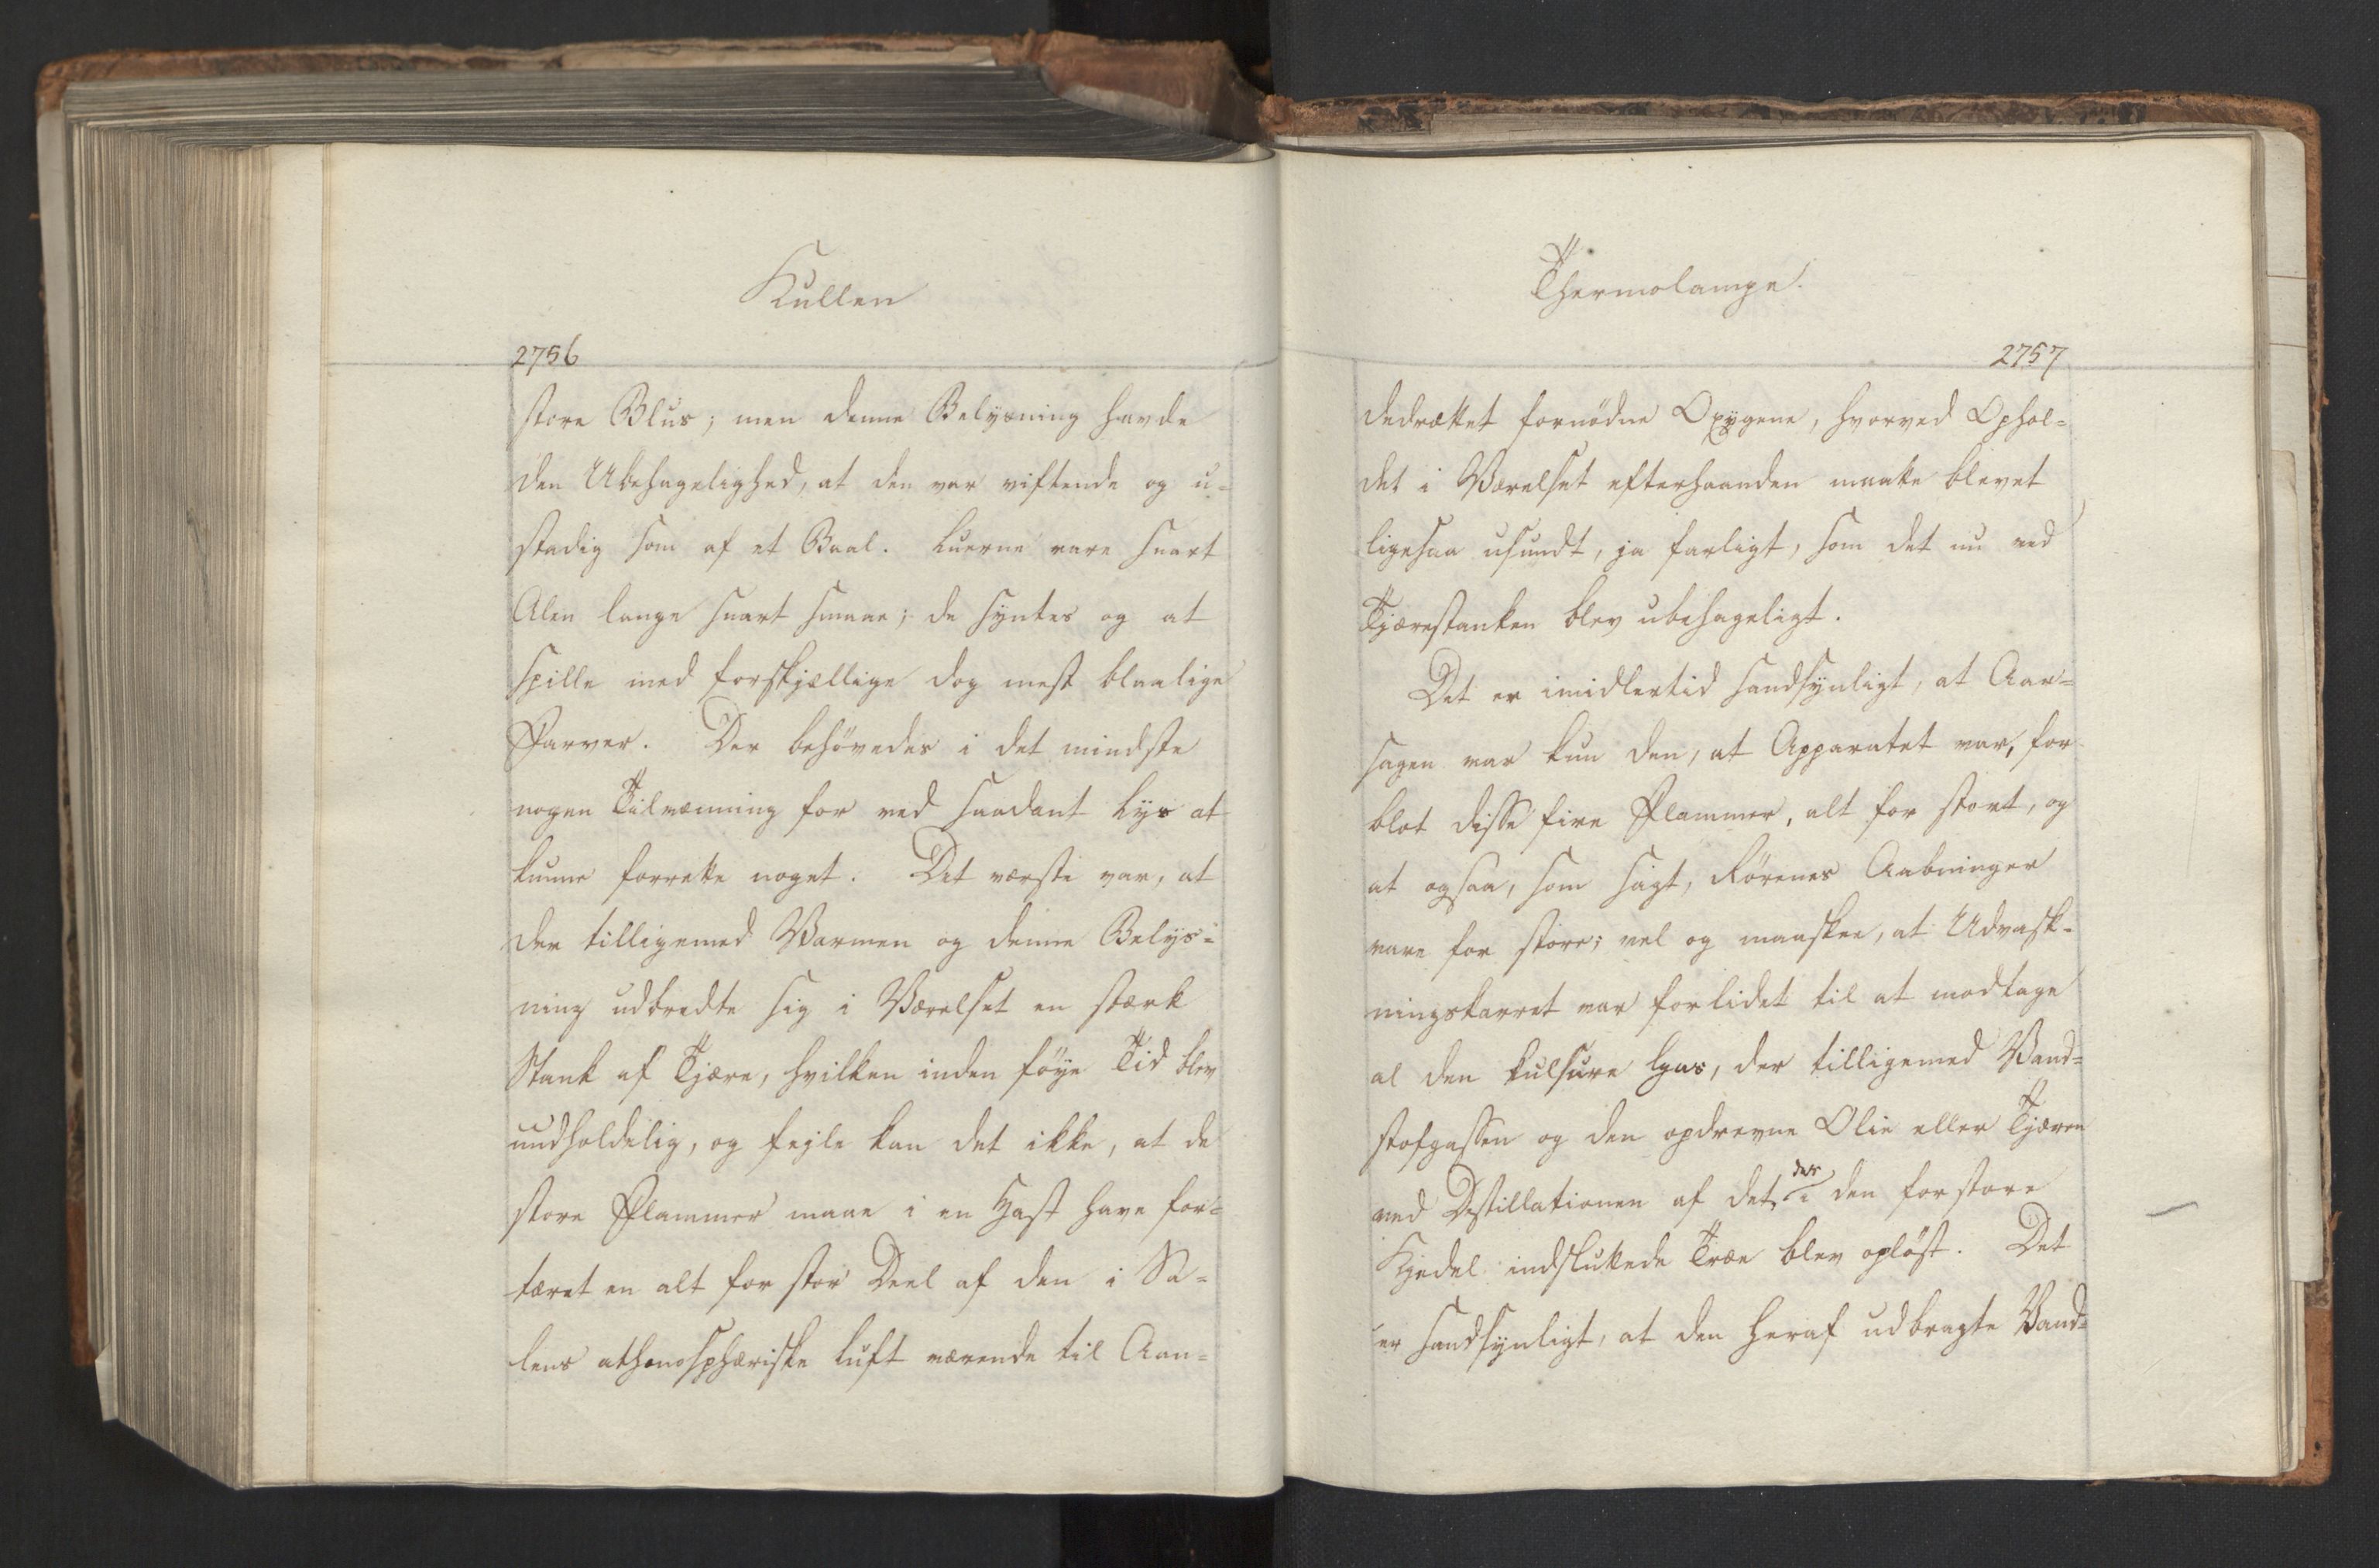 Kullen
2756
store Blus; men denne Belysning havde
den Ubehagelighed, at den var viftende og u-
stadig som af et Baal. Luerne vare snart
Alen lange snart smaae; de syntes og at
spille med forskjællige dog mest blaalige
Farver. Der behövedes i det mindste
nogen Tilvænning for ved saadant Lys at
kunne forrette noget. Det værste var, at
der tilligemed Varmen og denne Belys-
ning udbredte sig i Værelset en stærk
Stank af Tjære, hvilken inden föye Tid blev
uudholdelig, og fejle kan det ikke, at de
store Flammer maae i en Hast have for-
tæret en alt for stor Deel af den i Sa-
lens athmosphæriske Luft værende til Aan-
Thermolampe.
2757
dedrættet fornödne Oxygene, hvorved Ophol-
det i Værelset efterhaanden maatte blevet
ligesaa usundt, ja farligt, som det nu ved
Tjærestanken blev ubehageligt.
Det er imidlertid sandsynligt, at Aar-
sagen var kun den, at Apparatet var, for
blot disse fire Flammer, alt for stort, og
at ogsaa, som sagt, Rörenes Aabninger
vare for store; vel og maaskee, at Udvask-
ningskarret var forlidet til at modtage
al den kulsure Gas, der tilligemed Vand-
stofgassen og den opdrevne Olie eller Tjæren
ved Destillationen af det, der i den forstore
Kjedel indsluttede Træe blev oplöst. Det
er sandsynligt, at den heraf udbragte Vand-